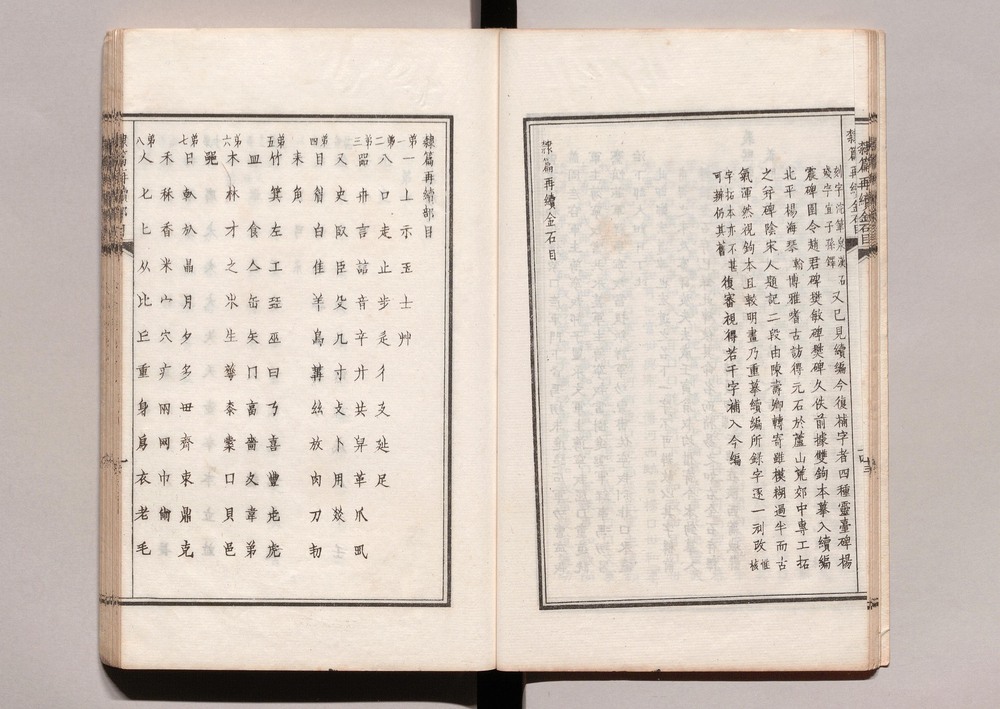 隸篇再續金石目
又已見續編今復補字者四種靈臺碑楊
震碑圉令趙君碑樊敏碑樊碑久佚前據雙鉤本摹入續編
北平楊海琴翰博雅嗜古訪得元石於蘆山荒郊中專工拓
之并碑陰宋人題記二段由陳壽卿轉寄雖模糊過半而古
氣渾然視鉤本且較明晝乃重摹續編所錄字逐一刓改惟核
字拓本亦不甚可辦仍其舊
復審視得若干字補入今編
隸篇再續金石目
隸篇再續部目
弟一 一上示玉士艸
弟二 八口走止步辵彳廴延足
弟三 㗊冊言誩音䇂廾共舁革爪鬥
又史臤臣殳几寸攴卜用爻
弟四 目白隹羊鳥冓丝放肉刀
耒角
弟五 竹箕左工巫曰乃喜豐虎
皿食亼缶矢冂高嗇夊韋弟
弟六 木林才之生華㯱口貝邑
弟七 日倝㫃晶月夕多毌齊朿鼎克
禾秝香米宀穴疒网巾㡀
弟八 人匕从比丘重身㐆衣老毛